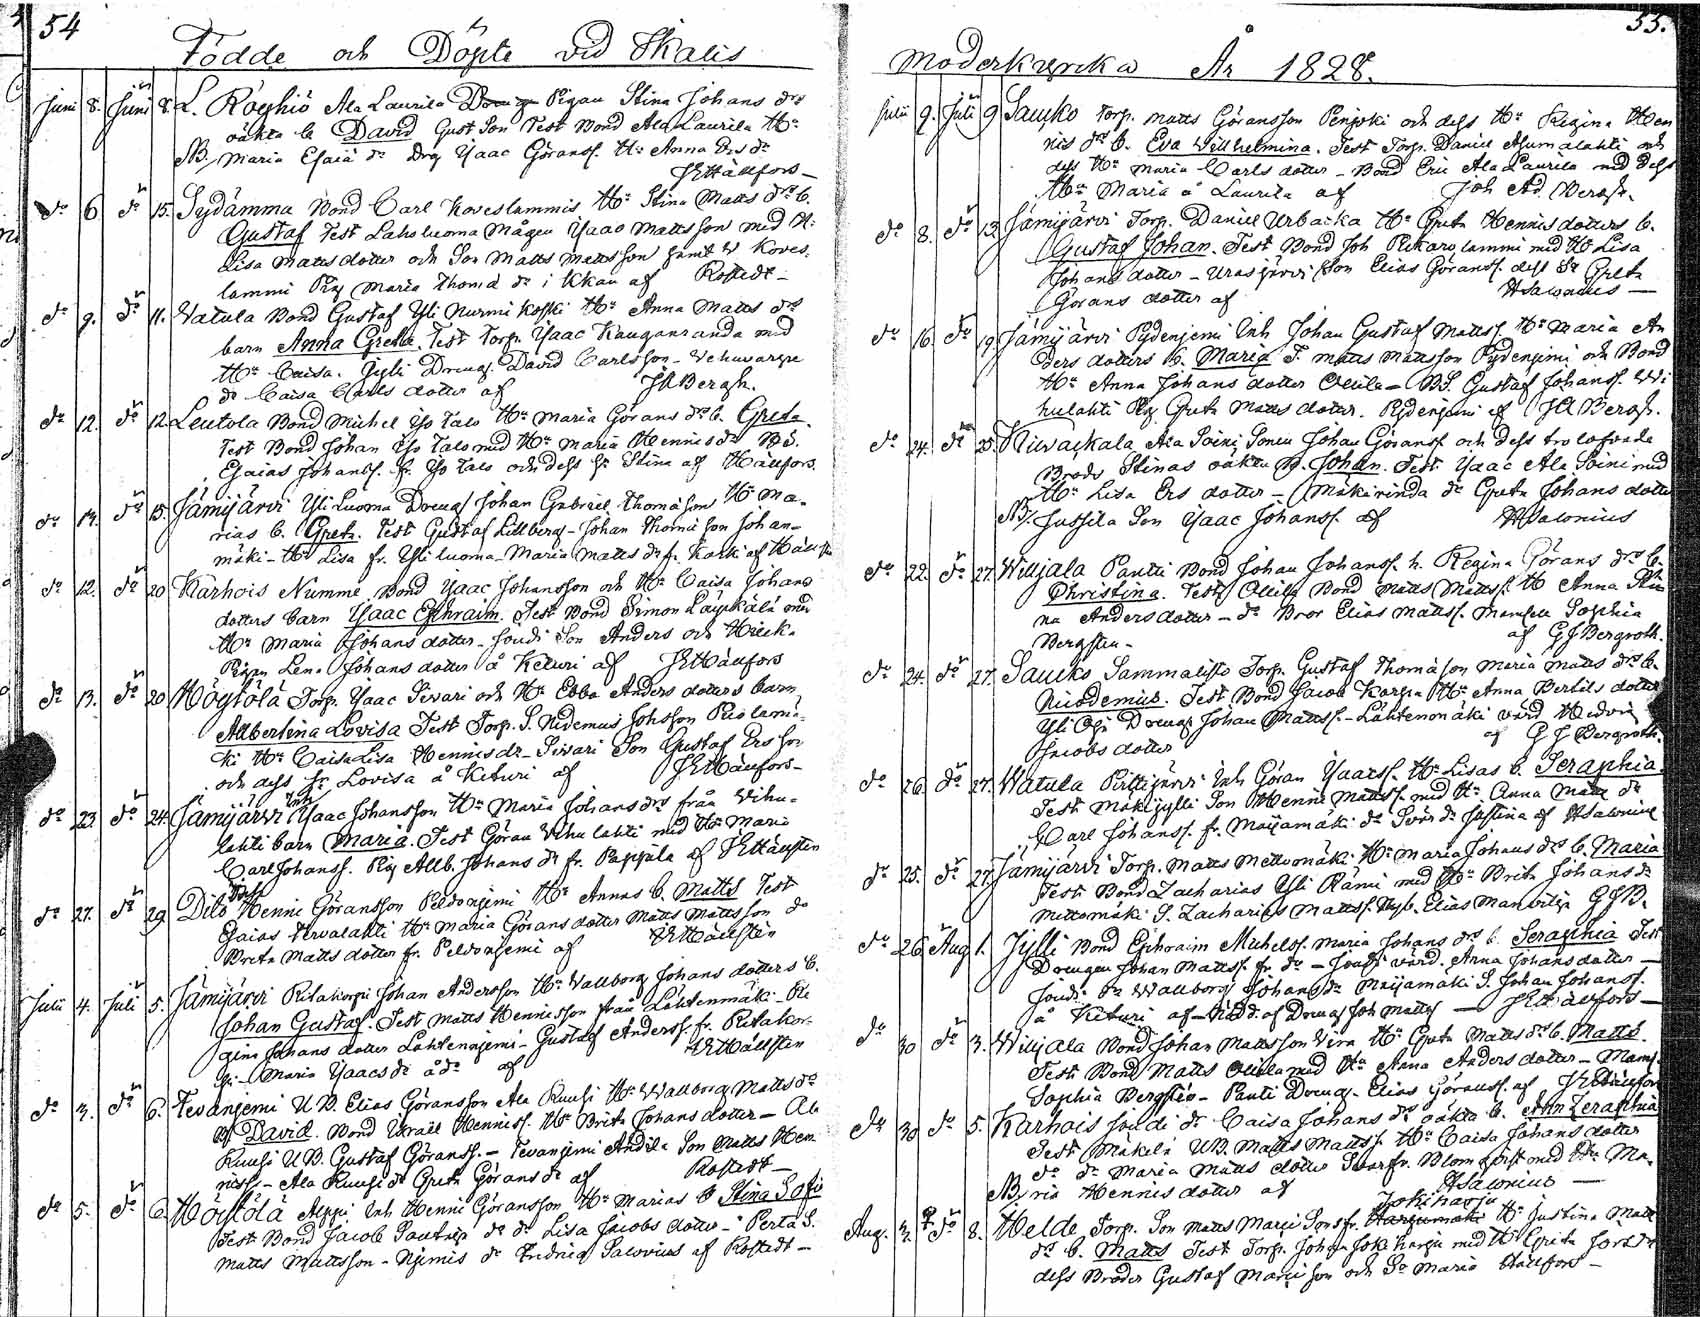 54
Födde och Döpte vid Ikalis
Juni 8. Juni 8. L. Röyhiö Ala Laurila Pigan Stina Johans drs
oäkta b. David Gust Son Test Bond Ala Laurila Hu
NB. Maria Esaiæ dr Drg Ysaac Göranss. Hu Anna drs dr
JEHällfors
do 6 do 15. Sydämma Bond Carl Koveslammis Hu Stina Matts drs b.
Gustaf Test Laholuoma Mågen Ysaac Mattsson med H:
Lisa Matts dotter och Son Matts Mattsson samt Koves
lammi Pig Maria Thomä dr i Ikkan af Rostedt
do 9. do 11. Vatula Bond Gustaf Yli Nurmi Koski Hu Anna Matts drs
barn Anna Greta. Test Torp. Ysaac Kauganranda med
Hu Caisa. Jylli Dreng. David Carlsson - Vehuvarpe
dr Caisa Carls dotter af JABergh.
do 12. do 12. Leutola Bond Michel Iso Talo Hu Maria Görans drs b. Greta.
Test Bond Johan Iso Talo med Hu Maria Hennis dr
Esaias Johanss. fr. Iso Talo och dess Sr Stina af Hällfors.
do 14. do 15. Jämijärvi Yli Luoma Dreng Johan Gabriel Thomäson Hu Ma-
rias b. Greta. Test Gustaf Lillberg - Johan Thomä Son Johan-
mäki - Hu Lisa fr. Yli luoma - Maria Matts dr fr. Kaski af
do 12. do 20 Karhois Numme Bond Ysaac Johansson och Hu Caisa Johans
dotters barn Ysaac Ephraim. Test Bond Simon Läyskälä med
Hu Maria Johans dotter - Joudi Son Anders och
Pigan Lena Johans dotter å Keturi af JEHällfors
do 13. do 20 Höytölä Torp. Ysaac Sivari och Hu Ebba Anders dotters barn
Albertina Lovisa Test Torp. S. Nidemus Johsson
ki Hu Caisa Lisa Hennis dr - Sivari Son Gustaf Ers son
och dess Sr Lovisa å Keturi af JEHällfors
do 23. do 24. Jämijärvi Inh Ysaac Johansson Hu Maria Johans drs från Vihu-
lahti barn Maria. Test Göran Vihu lahti med Hu Maria
Carl Johanss. Pig Allb. Johans dr fr. Pappila af JEHällsten
do 27. do 29 Dito Henric Göransson Peldoniemi Hu Annas b. Matts Test
Esaias Tervalahti Hu Maria Görans dotter Matts Mattsson do
Brita Matts dotter fr. Peldoniemi af JEHällsten
Julii 4. Juli 5. Jämijärvi Ritakorpi Johan Andersson Hu Vallborg Johans dotters b.
Johan Gustaf. Test Matts Hennisson från Lähtenmäki - Re
gina Johans dotter Lähteniemi - Gustaf Anderss. fr. Ritakor-
pi - Maria Ysaacs dr å do af JEHällsten
do 3. do 6. Tevaniemi UB. Elias Göransson Ala Kuusi Hu Wallborg Matts drs
b. David. Bond Israel Henniss. Hu Brita Johans dotter - Ala
Kuusi UB. Gustaf Göranss. - Tevaniemi Andila Son Matts Hen
niss. - Ala Kuusi dr Greta Görans dr af Rostedt
do 5. do 6. Höytölä Alppi Inh Henric Göransson Hu Marias b Stina Sofi
Test Bond Jacob Sautria do dr Lisa Jacobs dotter - Pertä S.
Matts Mattsson - Niemis dr Fredrica Salovius af Rostedt
55.
Moderkyrka År 1828.
Julii 9. Juli 9 Sauko Torp. Matts Göransson Penjoki och dess Hu Regina Hen
nis drs b. Eva Willhelmina. Test Torp. Daniel Asumalahti och
dess Hu Maria Carls dotter - Bond Eric Ala Laurila med dess
Hu Maria å Laurila af Joh Ad Bergh.
do 8. do 13 Jämijärvi Torp. Daniel Urbacka Hu Greta Hennis dotters b.
Gustaf Johan. Test Bond Joh Pitkäro lammi med Hu Lisa
Johans dotter - Urasjärvi Son Elias Göranss. dess Sr Greta
Görans dotter af HSalonius
do 16. do 19 Jämijärvi Pydeniemi Inh Johan Gustaf Mattss. Hu Maria An
ders dotters b. Maria T. Matts Mattsson Pydeniemi och Bond
Hu Anna Johans dotter Ollila - BS. Gustaf Johanss. Wi
hulahti Pig Greta Matts dotter. Pydeniemi af JABergh.
do 24. do 25. Kiwaskala Ala Soini Sonen Johan Göranss och dess trolofvade
Brods Stinas oäkta b. Johan. Test Ysaac Ala Soini med
Hu Lisa Ers dotter - Mäkirinda dr Greta Johans dotter
NB. Jussila Son Ysaac Johanss. af HSalonius
do 22. do 27. Willjala Pantti Bond Johan Johanss. h. Regina Görans drs b.
Christina. Test Ollila Bond Matts Mattss. H Anna
na Anders dotter - do Bror Elias Mattss. Mamsell Sophia
Bergsten - af GJBergroth.
do 24. do 27. Saucko Sammalisto Torp. Gustaf Thomäson Maria Matts drs b.
Nicodemus. Test Bond Jacob Karppa Hu Anna Bertils dotter
Yli Dreng Johan Mattss. - Lähtenmäki värd Hedvig
Jacobs dotter af GJBergroth.
do 26. do 27. Watula Pittijärvi Inh Göran Ysaacss. Hu Lisas b. Seraphia
Test Mäkijylli Son Henric Mattss. med Hu Anna Matts dr
Carl Johanss. fr. Maijamäki do Justina af HSalonius
do 25. do 27. Jämijärvi Torp. Matts Mettomäki Hu Maria Johans drs b. Maria
Test Bond Zacharias Yli Rämi med Hu Brita Johans dr
Mettomäki S. Zacharias Mattss. Elias GJB.
do 26 Aug 1. Jylli Bond Ephraim Michelss. Maria Johans drs b. Seraphia Test
Drengen Johan Mattss. fr. do - Joudi värd. Anna Johans dotter
Joudi dr Wallborg Johans dr Maijamäki S. Johan Johanss.
å Keturi af JEHällfors
do 30 do 3. Willjala Bond Johan Mattsson Vira Hu Greta Matts drs b. Matts.
Test Bond Matts Ollila med Hu Anna Anders dotter - Mams.
Sophia Bergsten - Panti Dreng. Elias Göranss. af JEHällfors
do 30 do 5. Karhois Joudi dr Caisa Johans drs oäkta b. Ann Zeraphia
Test Mäkelä UB. Matts Mattss. Hu Caisa Johans dotter
do dr Maria Matts dotter Svarfv. Blomqvist med Hu Ma-
NB ria Hennis dotter af HSalonius
Jokiharju
Aug. 3. do 8. Helde Torp. Son Matts Marci Sons fr. Harjumäki Hu Justina Matts
drs b. Matts Test Torp. Johan Jokiharju med H Greta Jos dr
dess Broder Gustaf Marci son och Sr Maria Hällfors